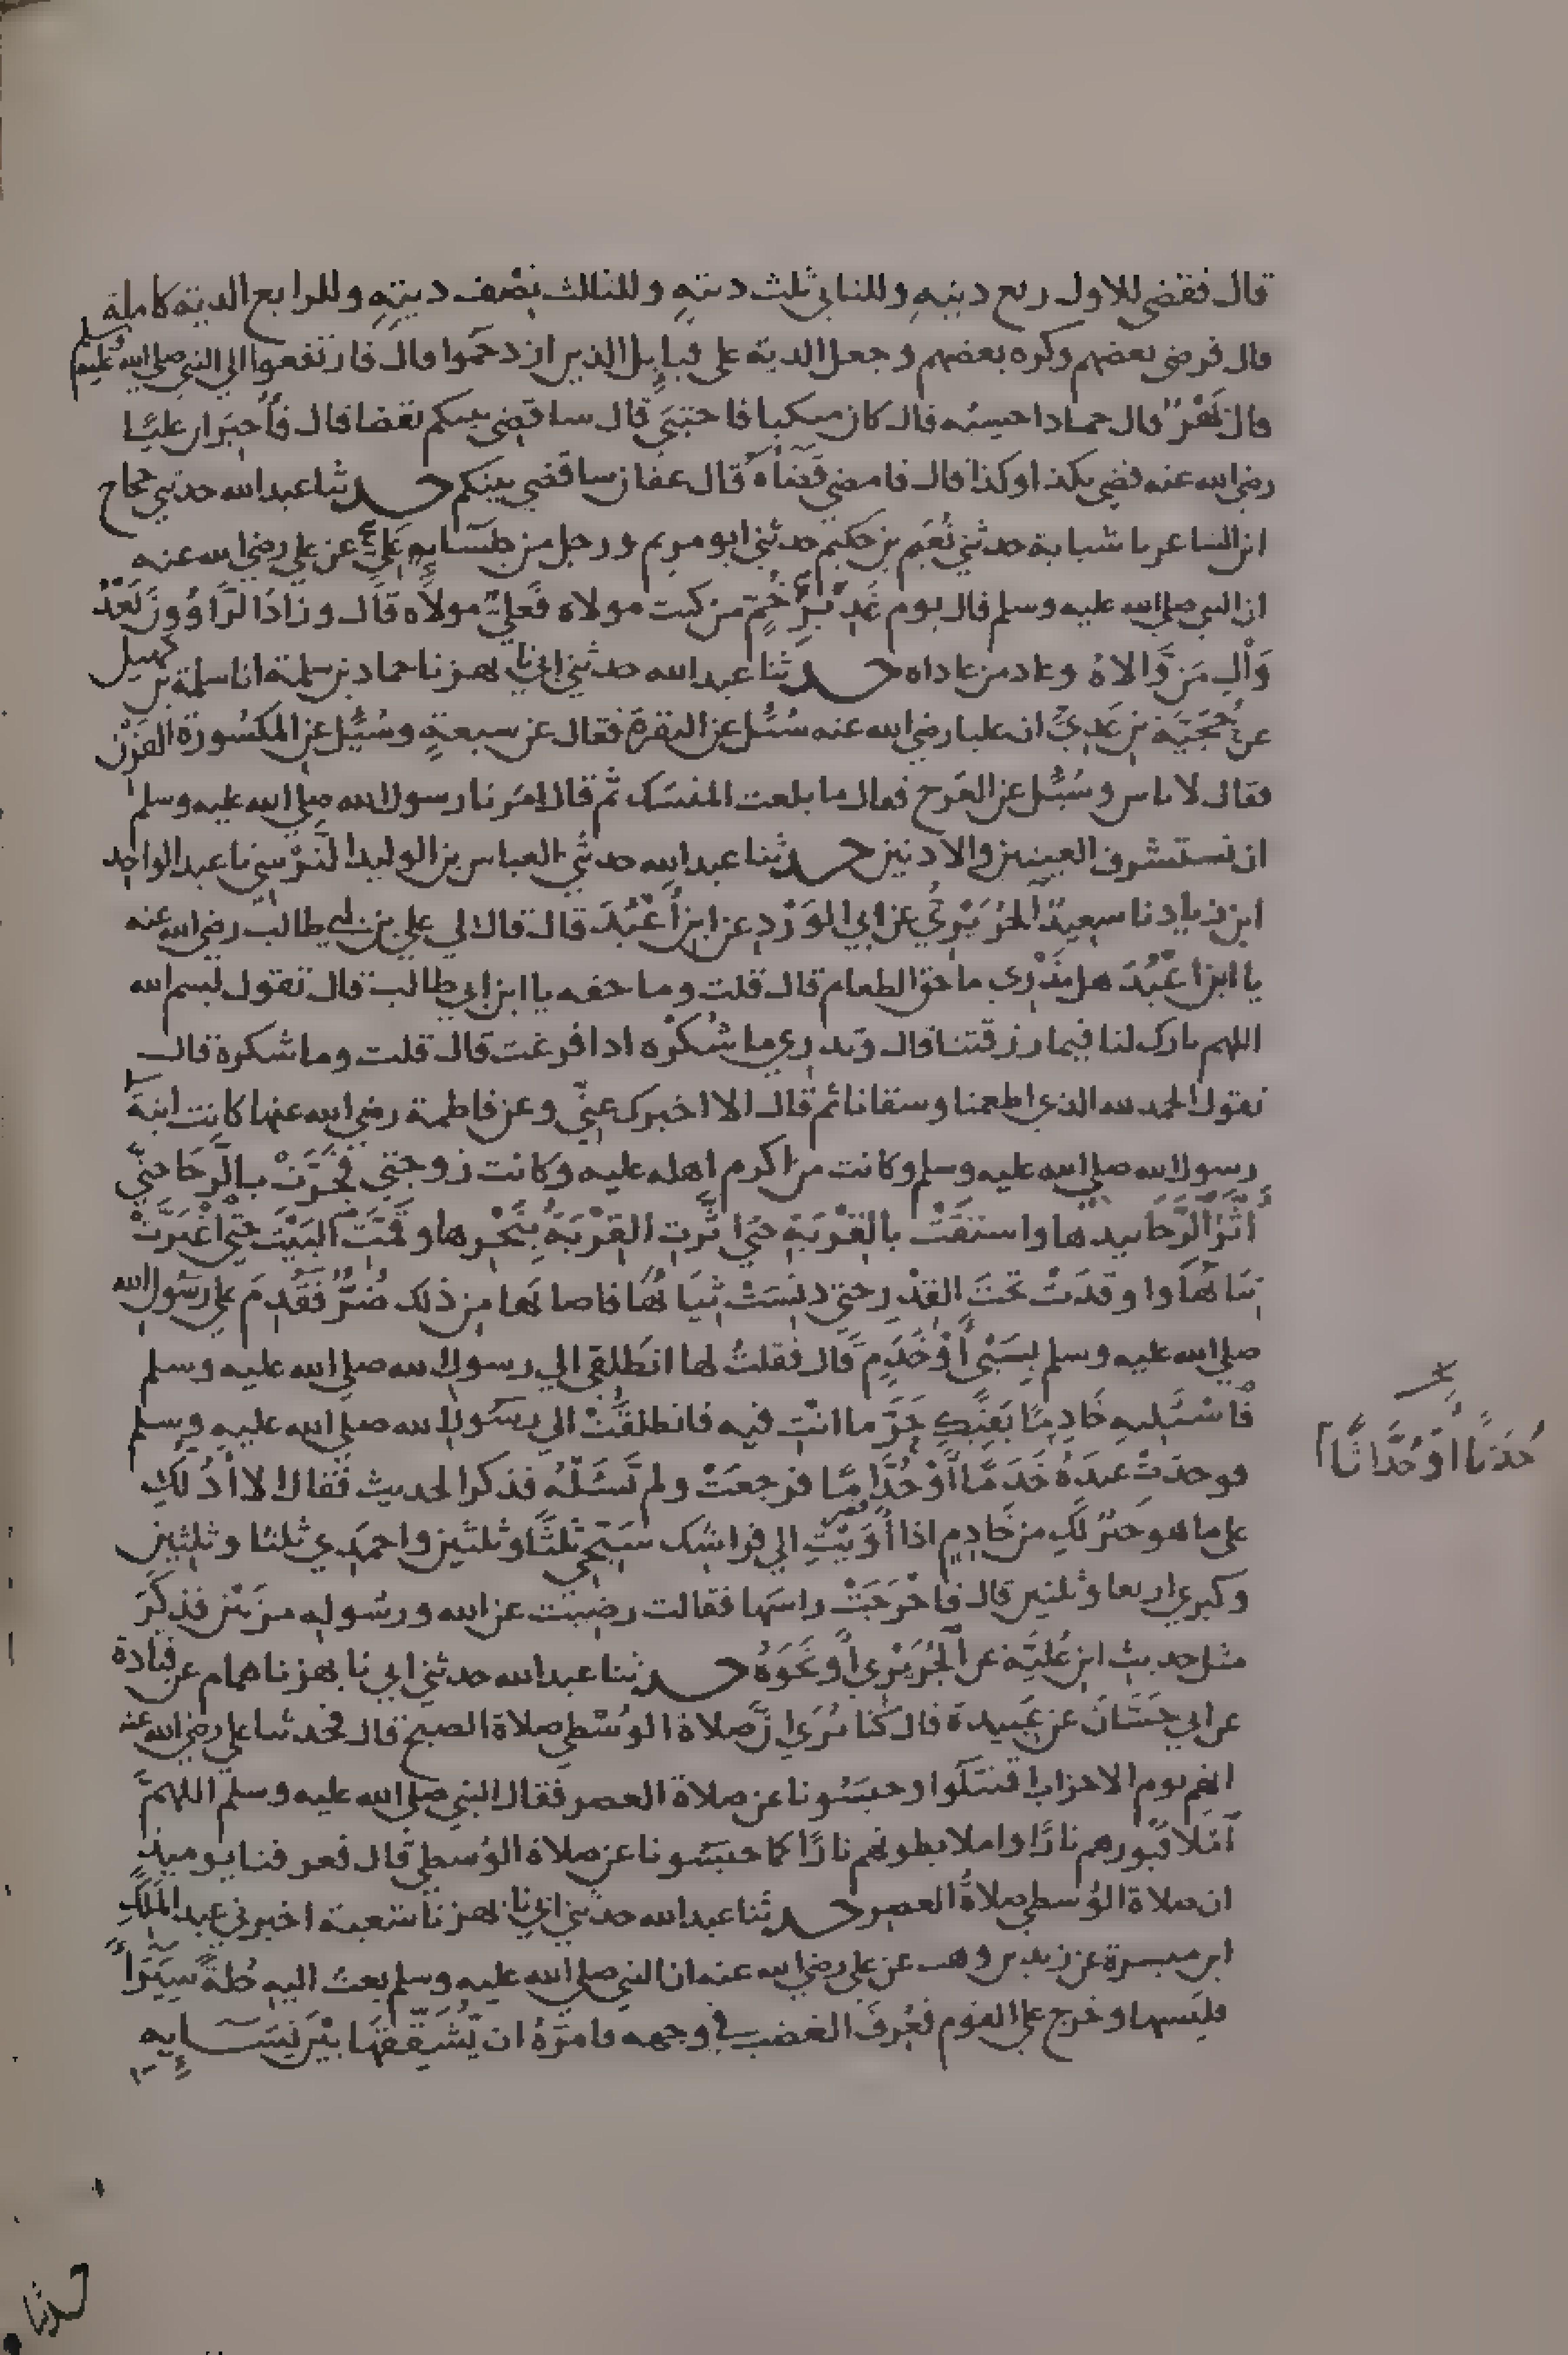 قال فقضى للاول ربع ديته وللثاني ثلث ديته وللثالث نصف ديته وللرابع الدية كاملة
قال فرضي بعضهم وكره بعضهم وجعل الدية على قبايل الذين ازدحموا قال فارتفعوا الي النبي صلي الله عليه وسلم
قال بهز قال حماد احسبه قال كان متكيا فاحتبى قال ساقضي بينكم بقضا قال فأخبر ان عليا
رضي الله عنه قضي بكذا وكذا قال فامضي قضاه قال عفان ساقضي بينكم حدثنا عبد الله حدثني حجاج
ابن الشاعر نا شبابة حدثني نعيم بن حكيم حدثني ابو مريم ورجل من جلسايه علي عن علي رضي الله عنه
ان النبي صلي الله عليه وسلم قال يوم غدير خم من كنت مولاه فعلي مولاه قال وزاد الراوون بعد
وال من والاه وعاد من عاداه حدثنا عبد الله حدثني ابي نا بهز نا حماد بن سلمة انا سلمة بن كهيل
عن حجية بن عدي ان عليا رضي الله عنه سئل عن البقرة فقال عن سبعة وسئل عن المكسورة القرن
فقال لا باس وسئل عن العرج فقال ما بلعت المنسك ثم قال امرنا رسول الله صلي الله عليه وسلم
ان نستشرف العينين والاذنين حدثنا عبد الله حدثني العباس بن الوليد النرسي نا عبد الواحد
ابن زياد نا سعيد الجريري عن ابي الورد عن ابن أعبد قال قال لي علي بن ابي طالب رضي الله عنه
يا ابن اعبد هل تدري ما حق الطعام قال قلت وما حقه يا ابن ابي طالب قال تقول بسم الله
اللهم بارك لنا فيما رزقتنا قال وتدري ما شكره اذا فرغت قال قلت وما شكره قال
تقول الحمد لله الذي اطعمنا وسقانا ثم قال الا اخبرك عني وعن فاطمة رضي الله عنها كانت ابنة
رسول الله صلي الله عليه وسلم وكانت من اكرم اهله عليه وكانت زوجتي فجرت بالرحا حتى
أثر الرحا بيدها واستقت بالقربة حتي اثرت القربة بنحرها وقمت البيت حتي اغبرت
ثيابها واوقدت تحت القدر حتي دنست ثيابها فاصابها من ذلك ضر فقدم علي رسول الله
صلي الله عليه وسلم بسبي أو خدم قال فقلت لها انطلقي الي رسول الله صلي الله عليه وسلم
فاسئليه خادما يقيك حر ما انت فيه فانطلقت الي رسول الله صلي الله عليه وسلم
فوجدت عنده خدما أو خداما فرجعت ولم تسئله فذكر الحديث فقال الا أدلك
على ما هو خير لك من خادم اذا أويت الي فراشك سبحي ثلثا وثلثين واحمدي ثلثا وثلثين
وكبري اربعا وثلثين قال فاخرجت راسها فقالت رضيت عن الله ورسوله مرتين فذكر
مثل حديث ابن علية عن الجريري أو نحوه حدثنا عبد الله حدثني ابي نا بهز نا همام عن قتادة
عن ابي حسان عن عبيدة قال كنا نري ان صلاة الوسطي صلاة الصبح قال فحدثنا علي رضي الله عنه
انهم يوم الاحزاب اقتتلوا وحبسونا عن صلاة العصر فقال النبي صلي الله عليه وسلم اللهم
املا قبورهم نارا واملا بطونهم نارا كما حبسونا عن صلاة الوسطي قال فعرفنا يوميذ
ان صلاة الوسطي صلاة العصر حدثنا عبد الله حدثني ابي نا بهز نا شعبة اخبرني عبد الملك
ابن ميسرة عن زيد بن وهب عن علي رضي الله عنه ان النبي صلي الله عليه وسلم بعث اليه حلة سيراء
فلبسها وخرج علي القوم فعرف الغضب في وجهه فامره ان يشققها بين نسايه
حدثا أو حداثا
حدثنا